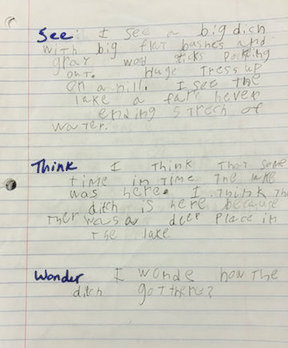 See: I see a big dich
with big flat bushes and
gray wod sticks poking
out. Huge tress up
on a hill. I see the
lake a fare never
ending strech of
water.
Think I think that some
time in time the lake
was here. I think the
ditch is here because
ther was a deep place in
the lake
Wonder I wonde how the
ditch got there?